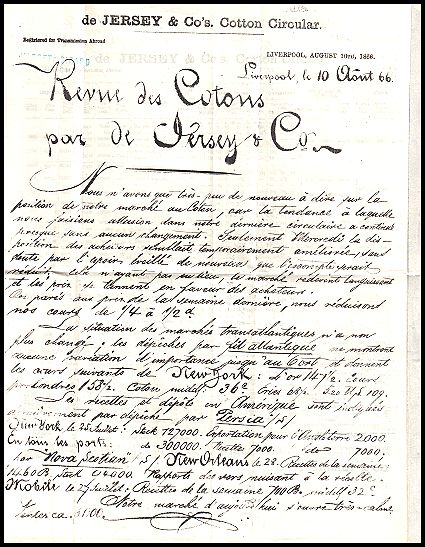 de JERSEY & Co's. Cotton Circular.
Registered for Transmission Abroad
LIVERPOOL, AUGUST 10TH, 1866.
Liverpool, le 10 Août 66.
Revue des Cotons
par de Jersey & Co.
Nous n'avons que très-peu de nouveau à dire sur la
position de notre marché au Coton, car la tendance à laquelle
nous faisions allusion dans notre dernière circulaire a continué
presque sans aucun changement. Seulement Mercredi la dis-
position des acheteurs semblait temporairement améliorée, sans
doute par l'espoir de nouveau que l'escompte serait
réduit, cela n'ayant pas eu lieu, le marché redevint languissant
et les prix se tiennent en faveur des acheteurs.
On parés aux prix de la semaine dernière, nous réduisons
nos cours de 1/4 à 1/2 d.
La situation des marchés transatlantiques n'a non
plus changé; les dépêches par fil atlantique ne montrent
aucune variation d'importance jusqu'au et donnent
les cours suivants de New York: L'or 147 1/2. Cours
sur Londres 158 1/2. Coton middlg 36c.
Les recettes et dépôts en Amérique sont indiqués
par dépêche par Persia /S/
New York le 25 Juillet: Stock 127000. Exportation pour l'Angleterre 2000.
En tous les ports: de 300000. Recettes 7000. do 7000.
Par Nova Scotian /S/ New Orleans le 28. Recettes de la semaine:
Stock Rapports des vers nuisant à la récolte.
Mobile le 27 Juillet: Recettes de la semaine middlg 32c
Notre marché d'aujourd'hui s'ouvre très-calme
Ventes ca.